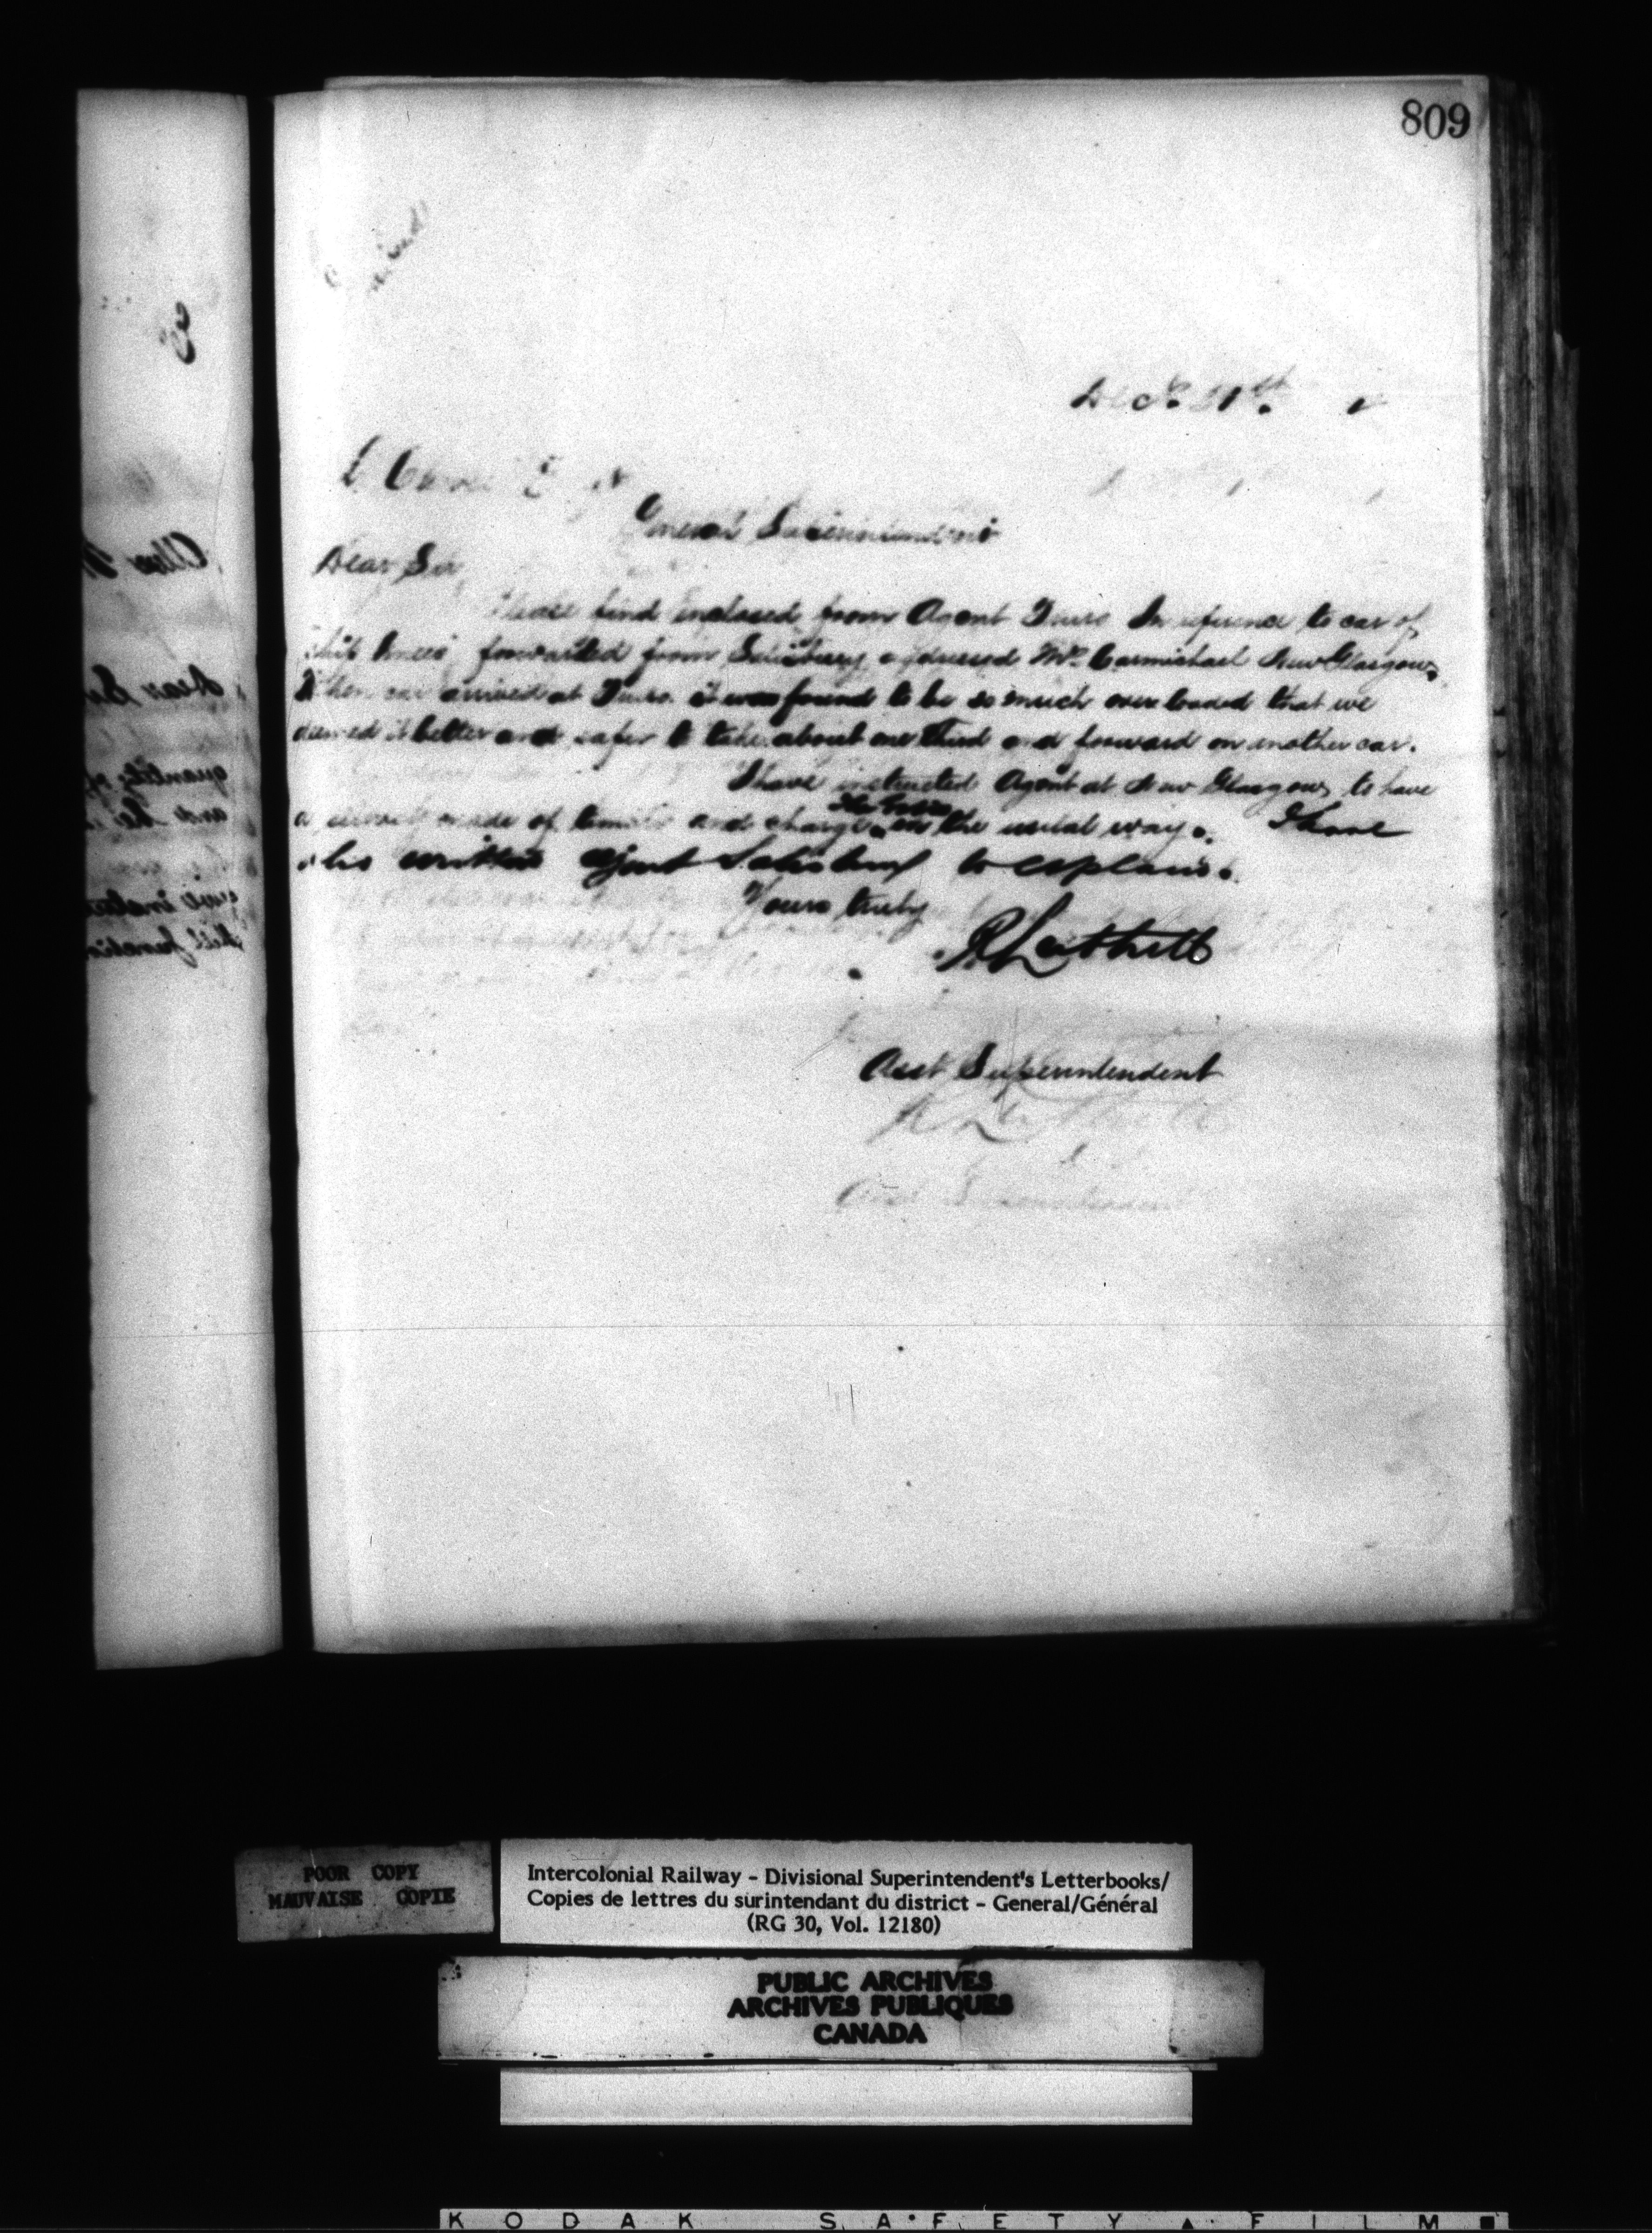 809
Decr 31st
General Superintendent
Dear Sir
Please find enclosed from Agent Truro In reference to car of
Ship knees forwarded from Salisbury addressed Mr. Carmichael New Glasgow,
When car arrived at Truro it was found to be so much over loaded that we
deemed it better and safer to take about one Third and forward on another car.
I have instructed Agent at New Glasgow to have
a made of and charge in the usual way. I have
also written agent Salisbury to explain.
Yours truly
Asst Superintendent
Asst Superintendent
POOR COPY
MAUVAISE COPIE
Intercolonial Railway - Divisional Superintendent's Letterbooks/
Copies de lettres du surintendant du district - General/Général
(RG 30, Vol. 12180)
PUBLIC ARCHIVES
ARCHIVES PUBLIQUES
CANADA
KODAK SAFETY FILM